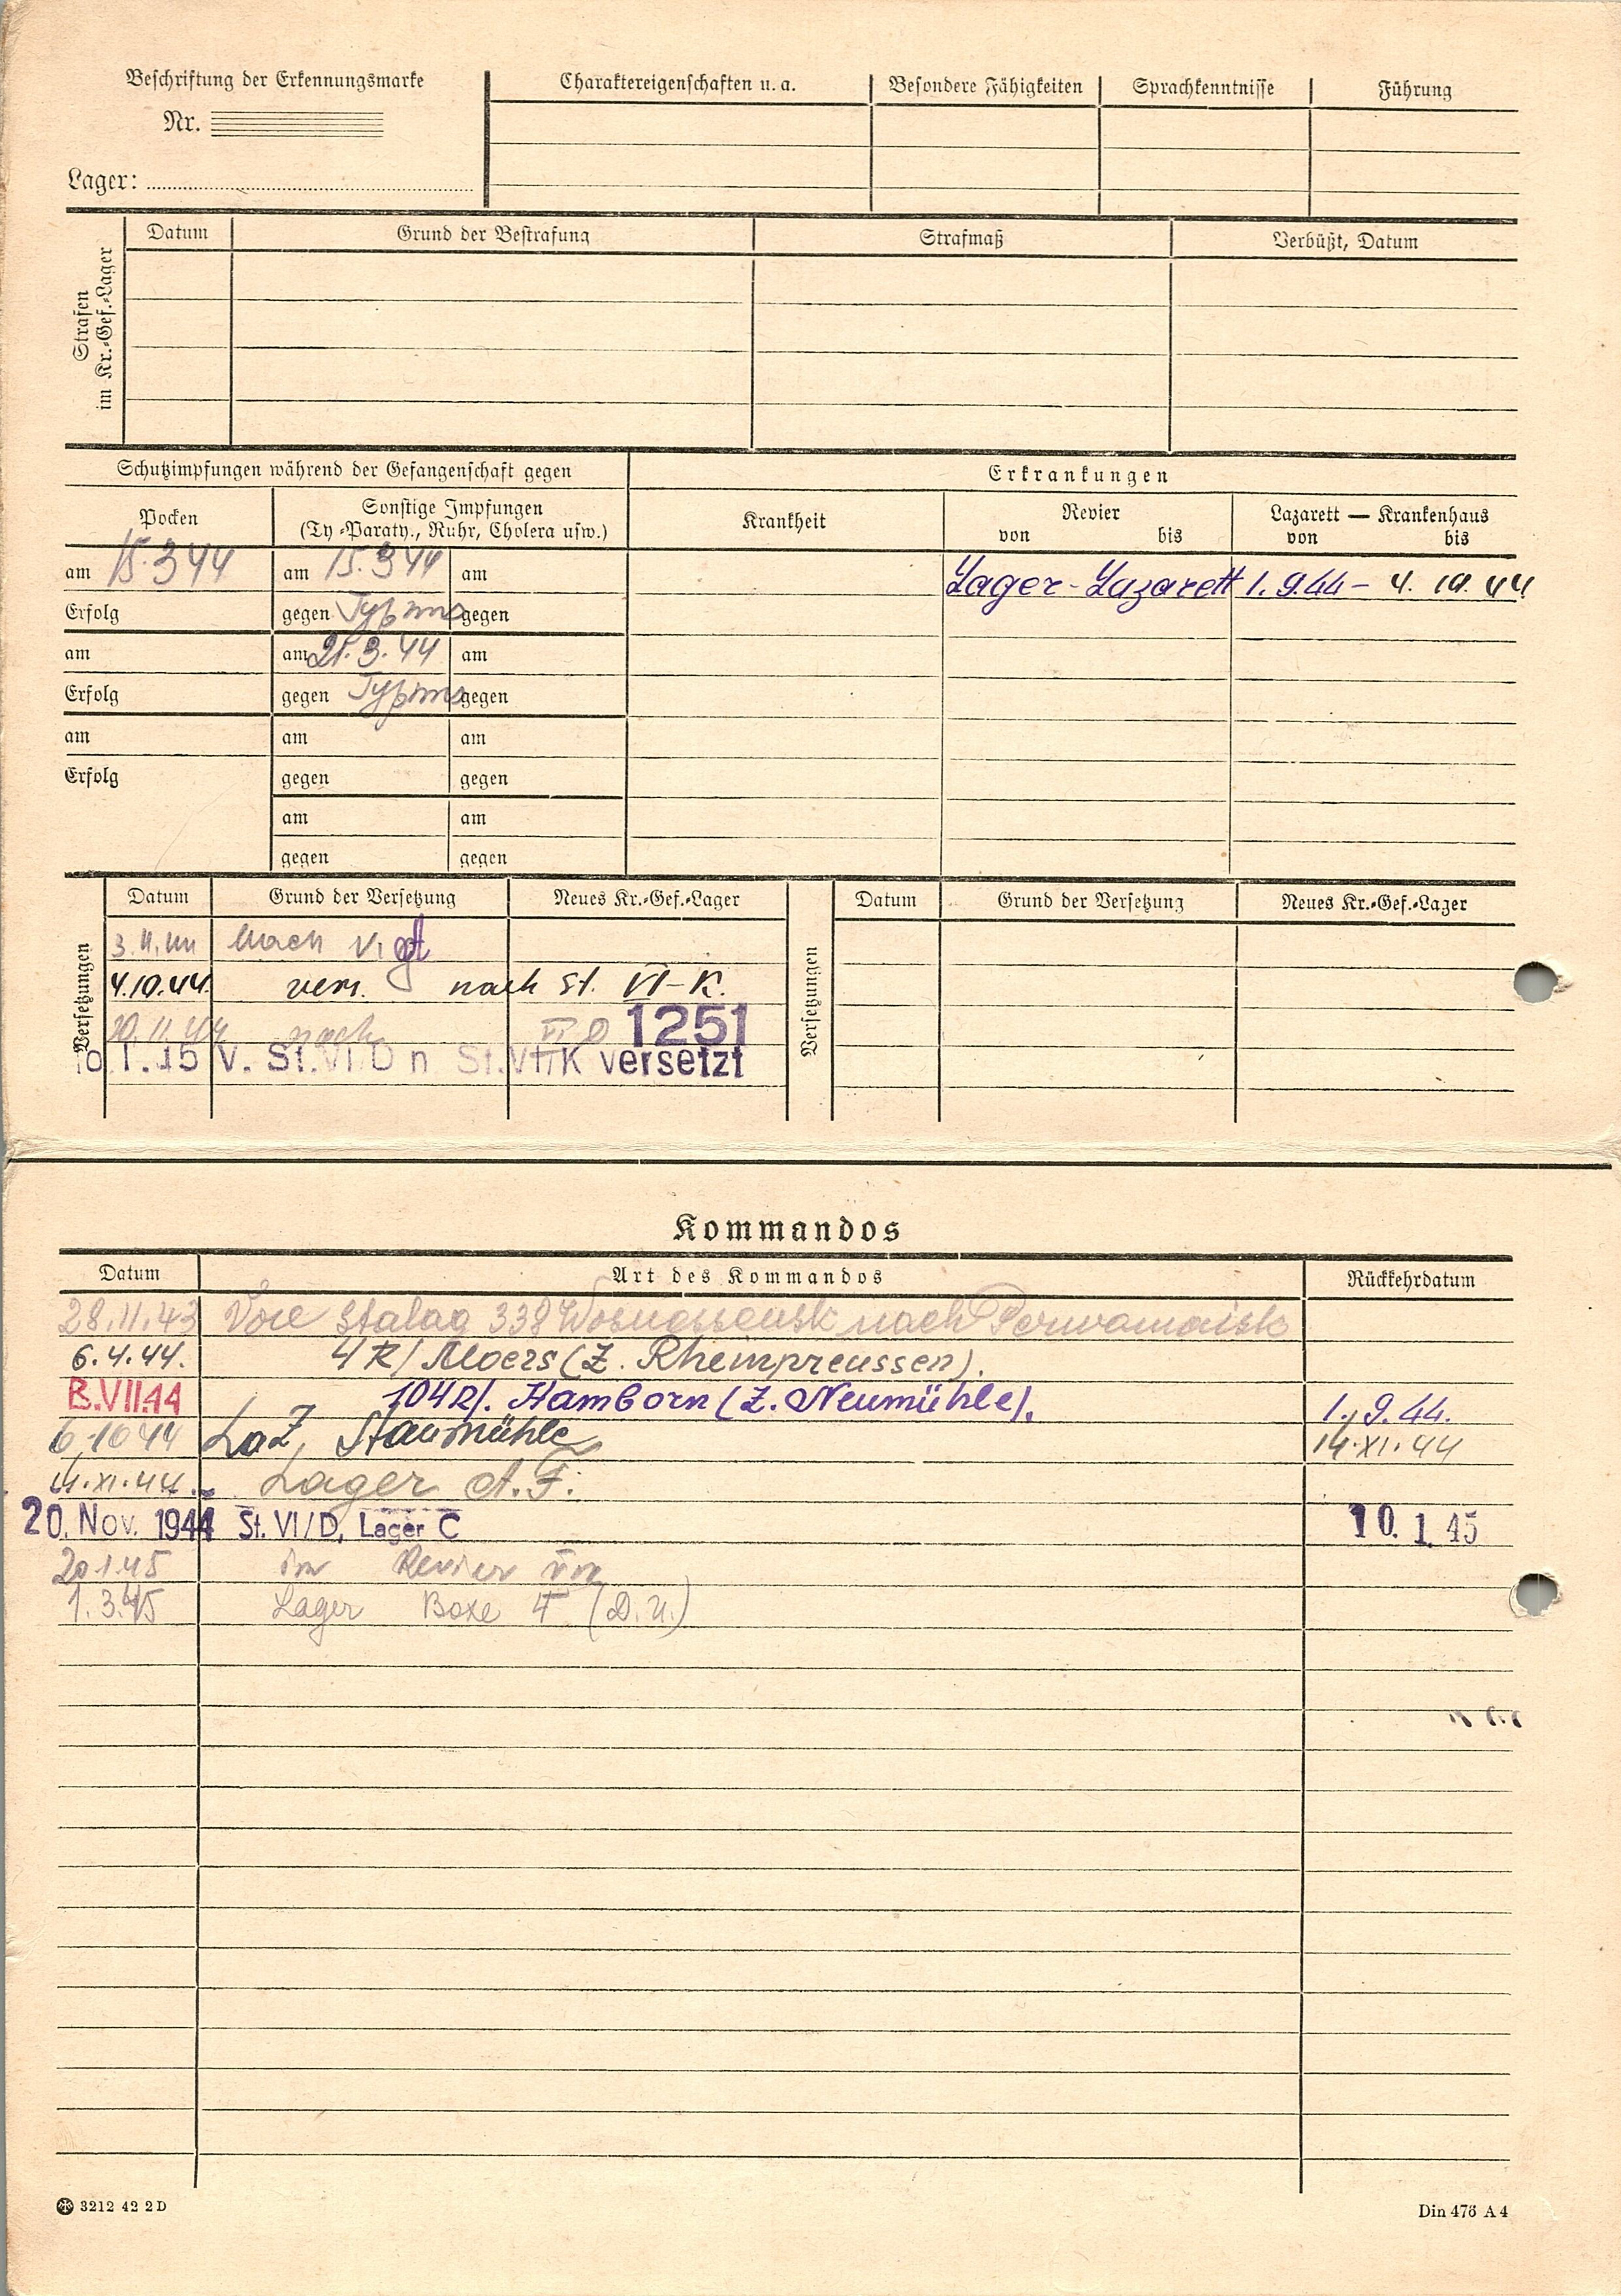 Beschriftung der Erkennungsmarke
Nr.
Lager:
Charaktereigenschaften u. a.
Besondere Fähigkeiten
Sprachkenntnisse
Führung
Strafen im Kr.-Gef.-Lager
Datum
Grund der Bestrafung
Strafmaß
Verbüßt, Datum
Schutzimpfungen während der Gefangenschaft gegen
Erkrankungen
Pocken
Sonstige Impfungen
(Ty-Paraty., Ruhr, Cholera usw.)
Krankheit
Revier
von bis
Lazarett — Krankenhaus
von bis
am 15.3 44 am 15.3 44 am
Lager-Lazarett 1.9.44 – 4.10.44
Erfolg gegen Typhus gegen
am am 21.3.44 am
Erfolg gegen Typhus gegen
am am am
Erfolg gegen gegen
am am
gegen gegen
Versetzungen
Datum Grund der Versetzung Neues Kr.-Gef.-Lager
Versetzungen
Datum Grund der Versetzung Neues Kr.-Gef.-Lager
Nach
4.10.44. vers. nach St. VI-K.
20.11.44 nach VI D 1251
1.45 V. St. VI/D n St. VI/K versetzt
Kommandos
Datum Art des Kommandos Rückkehrdatum
28.11.43 Stalag 338 Wosnessensk nach Perwomaisk
6.4.44. 4 R/ Moers (Z. Rheinpreussen).
VII.44 104 R/. Hamborn (Z. Neumühle). 1.9.44.
6.10 44 Laz, Staumühle 14.XI.44
14.XI.44. Lager A.F.
20. Nov. 1944 St. VI/D, Lager C 10. 1. 45
20.1.45 im Revier
1.3.45 Lager Boxe (D.U.)
3212 42 2 D
Din 476 A 4